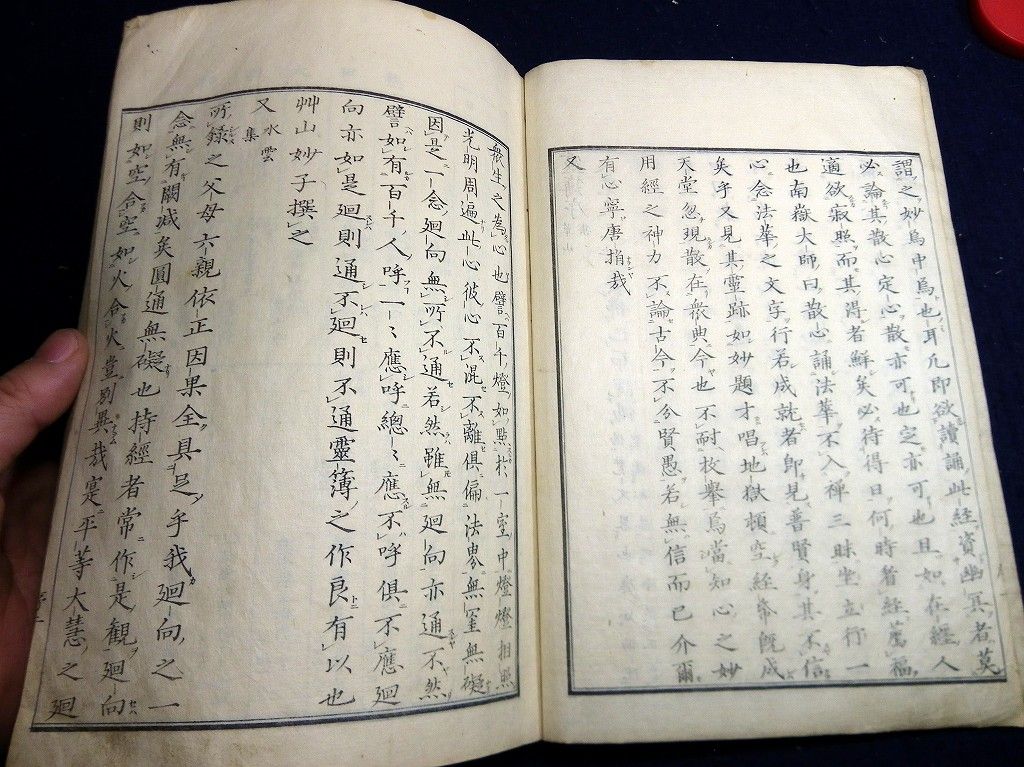 謂之妙烏乎烏也耳凡即欲讀誦此經資幽冥者莫
必論其散心定心散亦可也定亦可也且如在經人
適欲寂照而其得者鮮矣必待得日何時者經薦福
也南嶽大師曰散心誦法華不入禪三昧坐立行一
心念法華之文字行若成就者即見普賢身其不信
矣乎又見其靈跡如妙題才唱地獄頓空經帝既成
天堂忽現散在衆典今也不耐枚擧焉當知心之妙
用經之神力不論古今不分賢愚若無信而已介爾
有心寧唐捐哉
又
衆生之為心也譬百千燈如點於一室中燈燈相照
光明周遍此心彼心不混不離俱偏法界無罣無礙
因是一念廻向無所不通若然雖無廻向亦通不然
譬如有百千人呼一一應呼總總應不呼俱不應廻
向亦如是廻則通不廻則不通靈簿之作良有以也
艸山妙子撰之
又 水雲集
所錄之父母六親依正因果全具是乎我廻向之一
念無有闕減矣圓通無礙也持經者常作是觀廻向
則如空合空如火合火豈別異哉寔平等大慧之廻